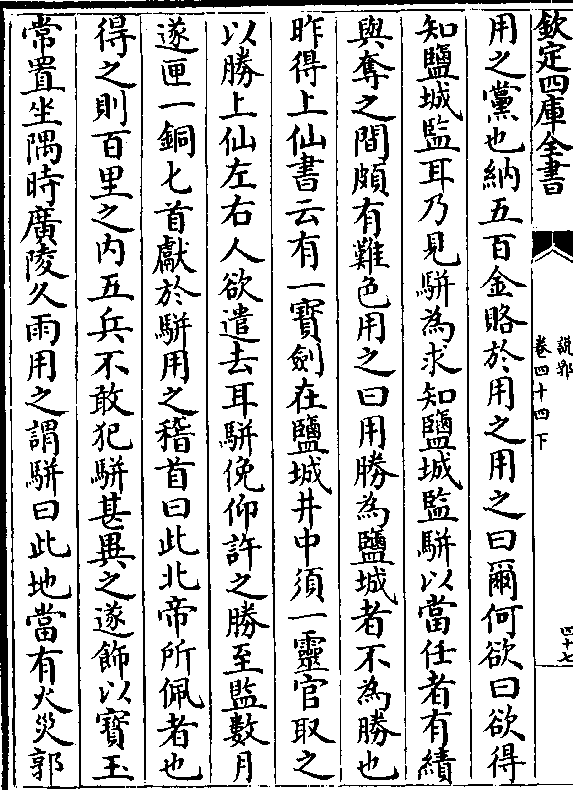 欽定四庫全書
說郛
卷四十四下
四十七
用之黨也納五百金賂於用之用之曰爾何欲曰欲得
知鹽城監耳乃見駢為求知鹽城監駢以當任者有績
與奪之間頗有難色用之曰用勝為鹽城者不為勝也
昨得上仙書云有一寶劍在鹽城井中須一靈官取之
以勝上仙左右人欲遣去耳駢俛仰許之勝至監數月
遂匣一銅匕首獻於駢用之稽首曰此北帝所佩者也
得之則百里之内五兵不敢犯駢甚異之遂飾以寶玉
常置坐隅時廣陵久雨用之謂駢曰此地當有火災郭